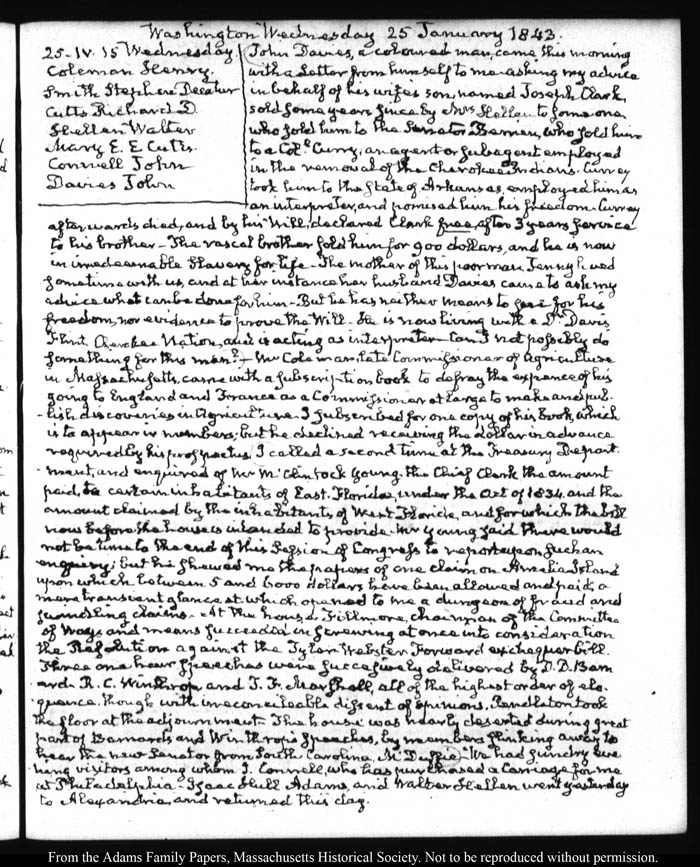 Washington Wednesday 25 January 1843.
25. IV. 15 Wednesday
Coleman Henry.
Smith Stephen Decatur
Cutts Richard D
Hellen Walter
Mary E. E Cutts
Connell John
Davies John
John Davies, a coloured man, came this morning
with a Letter from himself to me asking my advice
in behalf of his wife's son, named Joseph Clark,
sold some years since by Mrs Hellen to some one,
who sold him to the Senator Berrien, who sold him
to a Col. Curry, an agent or subagent employed
in the removal of the Cherokee Indians. Curry
took him to the State of Arkansas, employed him as
an interpreter, and promised him his freedom. Curry
afterwards died, and by his Will, declared Clark free, after 3 years service
to his brother – The rascal brother sold him for 900 dollars, and he is now
in irredeemable Slavery for life – The mother of this poor man, Jenny lived
sometime with us, and at her instance her husband Davies came to ask my
advice what can be done for him – But he has neither means to for his
freedom, nor evidence to prove the Will. He is now living with a Dr Davis,
Flint, Cherokee Nation, and is acting as interpreter – Can I not possibly do
something for this man? – Mr Coleman late Commissioner of Agriculture
in Massachusetts, came with a subscription book to defray the expence of his
going to England and France as a Commissioner at large to make and pub-
-lish discoveries in Agriculture. I subscribed for one copy of his Book, which
is to appear in numbers; but he declined receiving the dollar in advance
required by his prospectus. I called a second time at the Treasury Depart-
-ment, and enquired of Mr McClintock Young the Chief Clerk the amount
paid, to certain inhabitants of East Florida, under the Act of 1834, and the
amount claimed by the inhabitants of West Florida, and for which the bill
now before the house is intended to provide. Mr Young said there would
not be time to the end of this Session of Congress to report upon such an
enquiry; but he shewed me the papers of one claim on Amelia Island
upon which between 5 and 6000 dollars have been allowed and paid, a
mere transient glance at which opened to me a dungeon of fraud and
swindling claims. At the house, Fillmore, chairman of the Committee
of Ways and means succeeded in screwing at once into consideration
the Resolution against the Tyler Webster Forward exchequer bill.
Three one hour speeches were successively delivered by D. D. Barn
ard. R. C. Winthrop, and T. F. Marshall, all of the highest order of elo-
quence, though with irreconcileable dissent of opinions. Pendleton took
the floor at the adjournment. The house was nearly deserted during great
part of Barnard's and Winthrop's Speeches, by members slinking away to
hear the new Senator from South Carolina, McDuffie. We had sundry eve
ning visitors among whom J. Connell, who has purchased a Carriage for me
at Philadelphia – Isaac Hull Adams, and Walter Hellen went yesterday
to Alexandria, and returned this day.
From the Adams Family Papers, Massachusetts Historical Society. Not to be reproduced without permission.